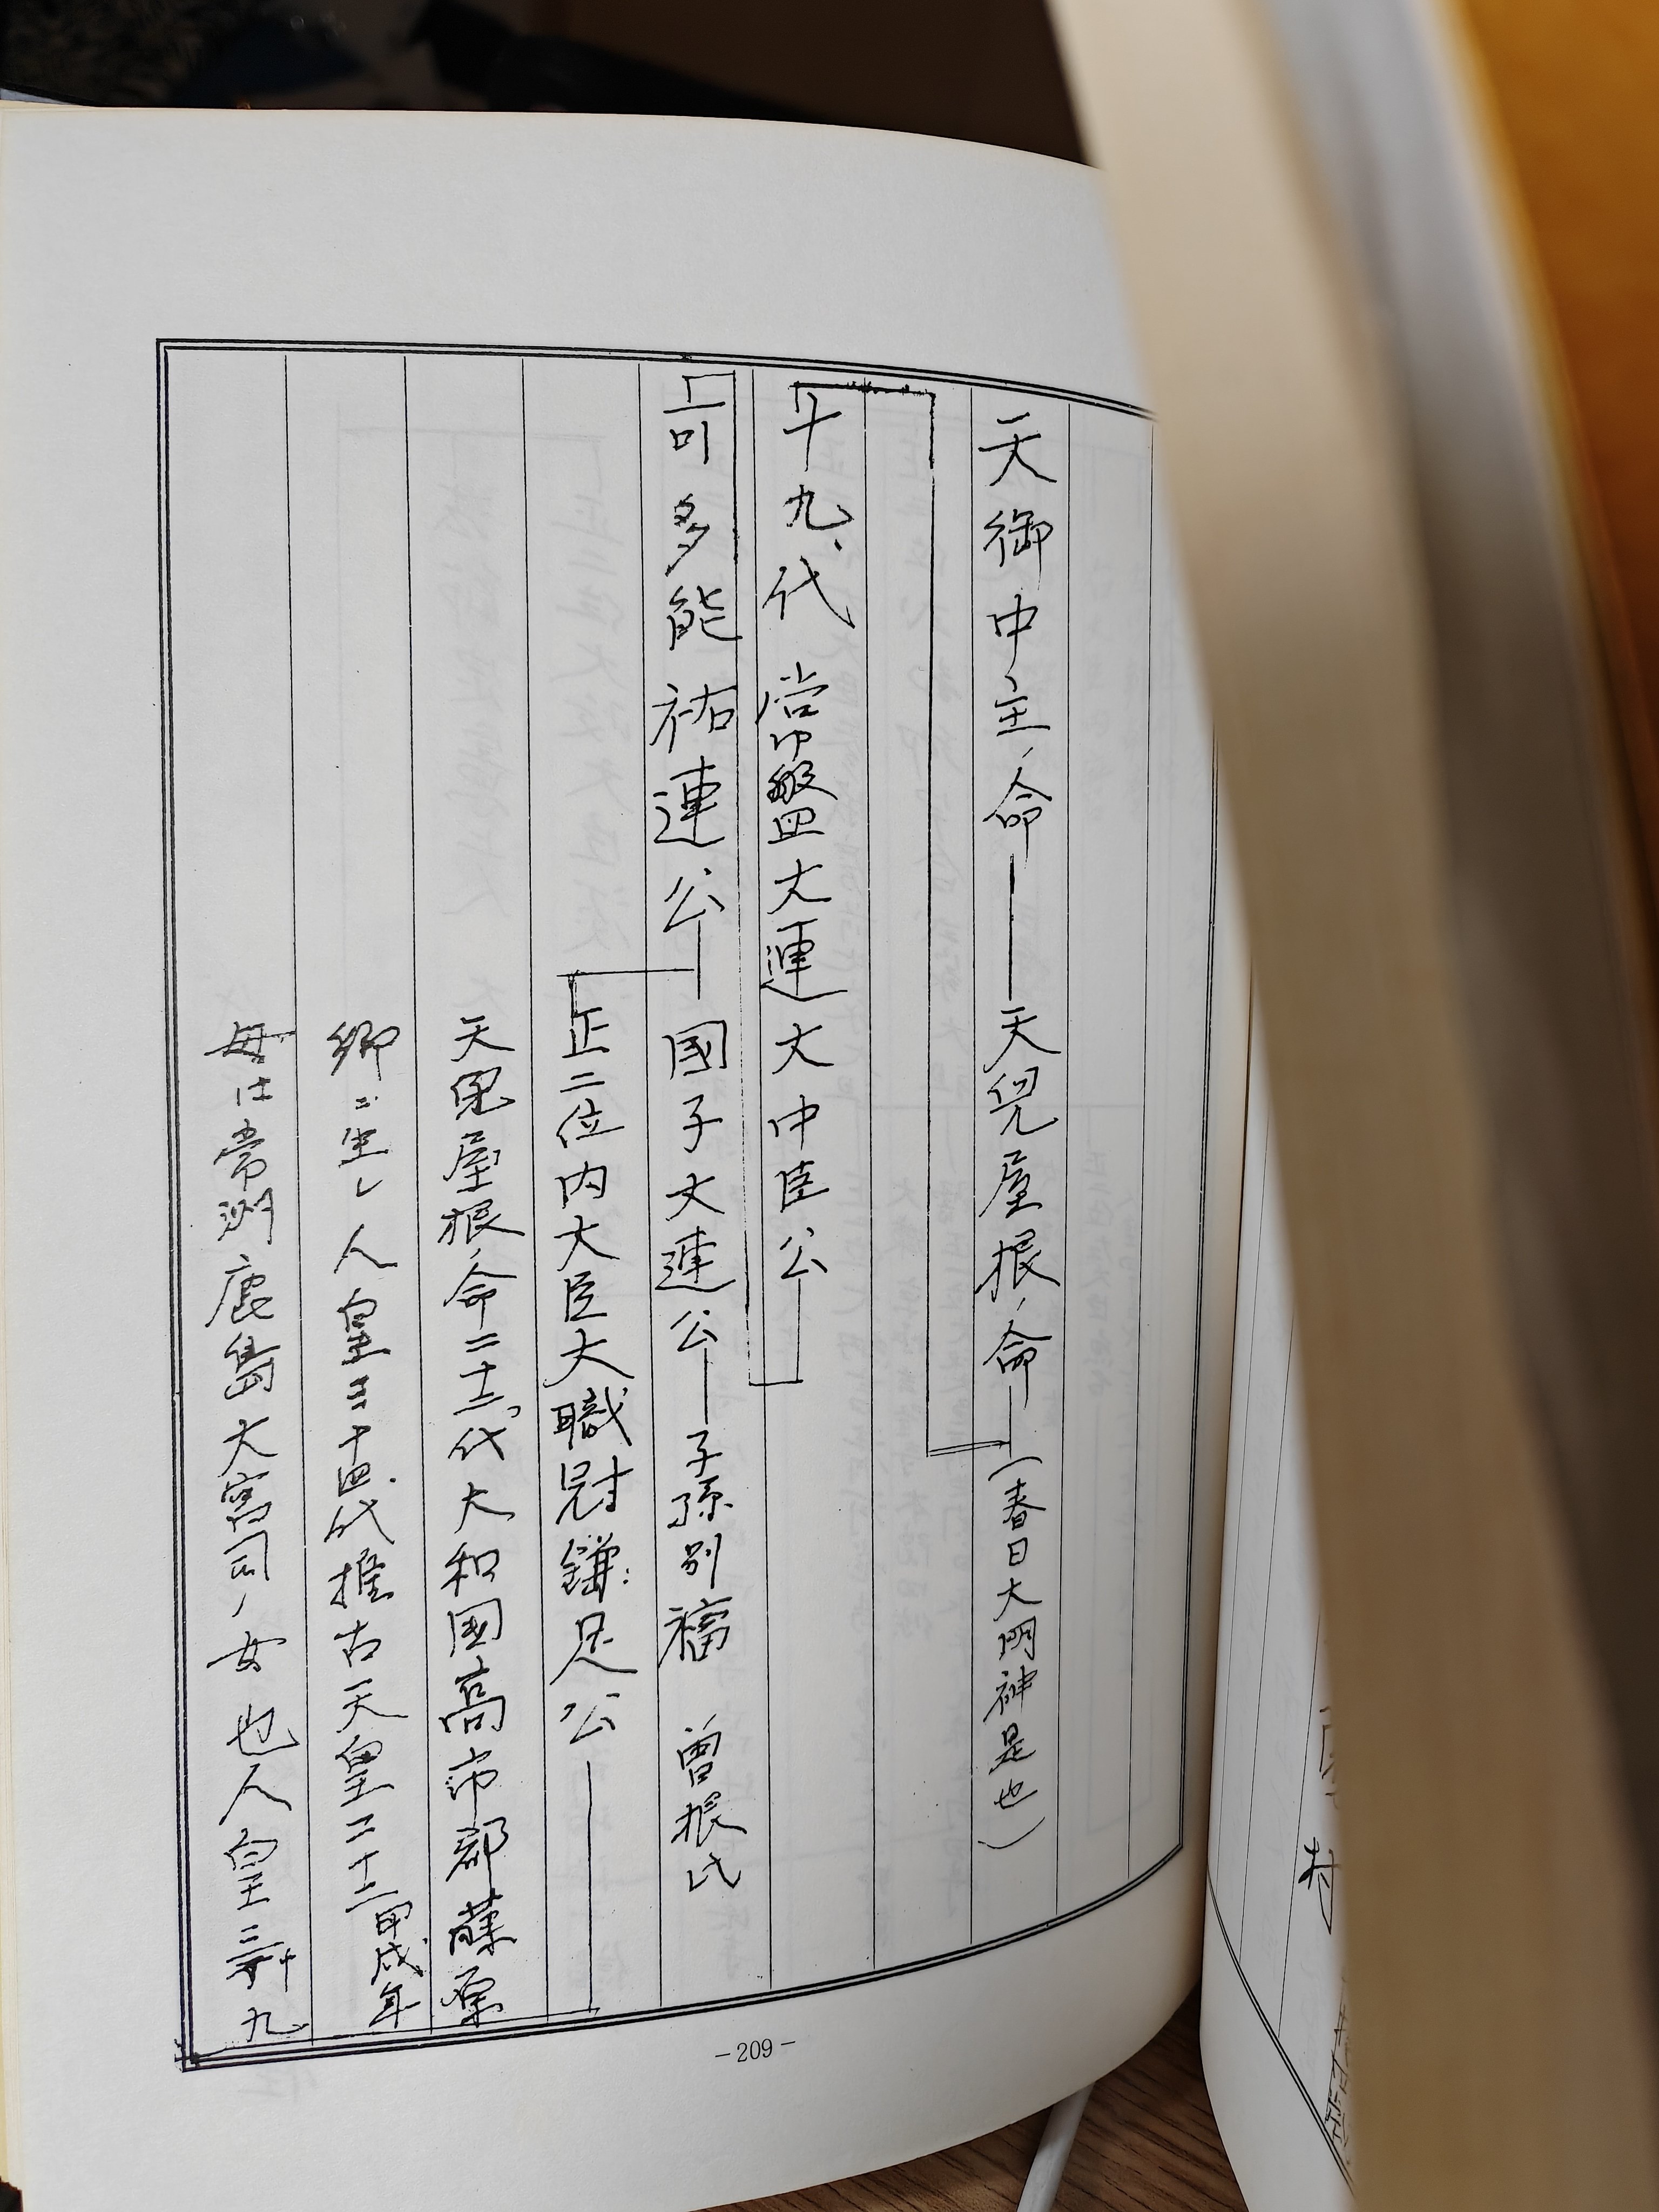 天御中主ノ命──天児屋根ノ命──(春日大明神是也)
十九代 常盤大連大中臣公
可多能祐連公──國子大連公──子孫別福 曽根氏
正二位内大臣大職冠鎌足公──
天児屋根ノ命二十二代大和國高市郡藤原
郷ニ生レ人皇三十四代推古天皇二十二甲戌年
母仕常洲鹿島大宮司ノ女也人皇三十九
-209-